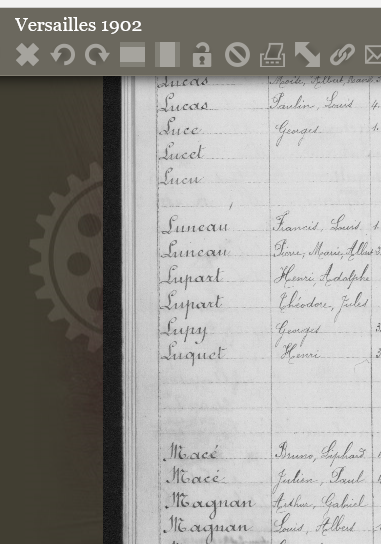 Versailles 1902
Lucas Albert
Lucas Paulin, Louis
Luce Georges
Lucet
Lucu
Luneau Francis, Louis
Luneau Pierre, Marie, Albert
Lupart Henri, Adolphe
Lupart Théodore, Jules
Lupy Georges
Luquet Henri
Macé Bruno, Elphard
Macé Julien, Paul
Magnan Arthur, Gabriel
Magnan Louis, Albert